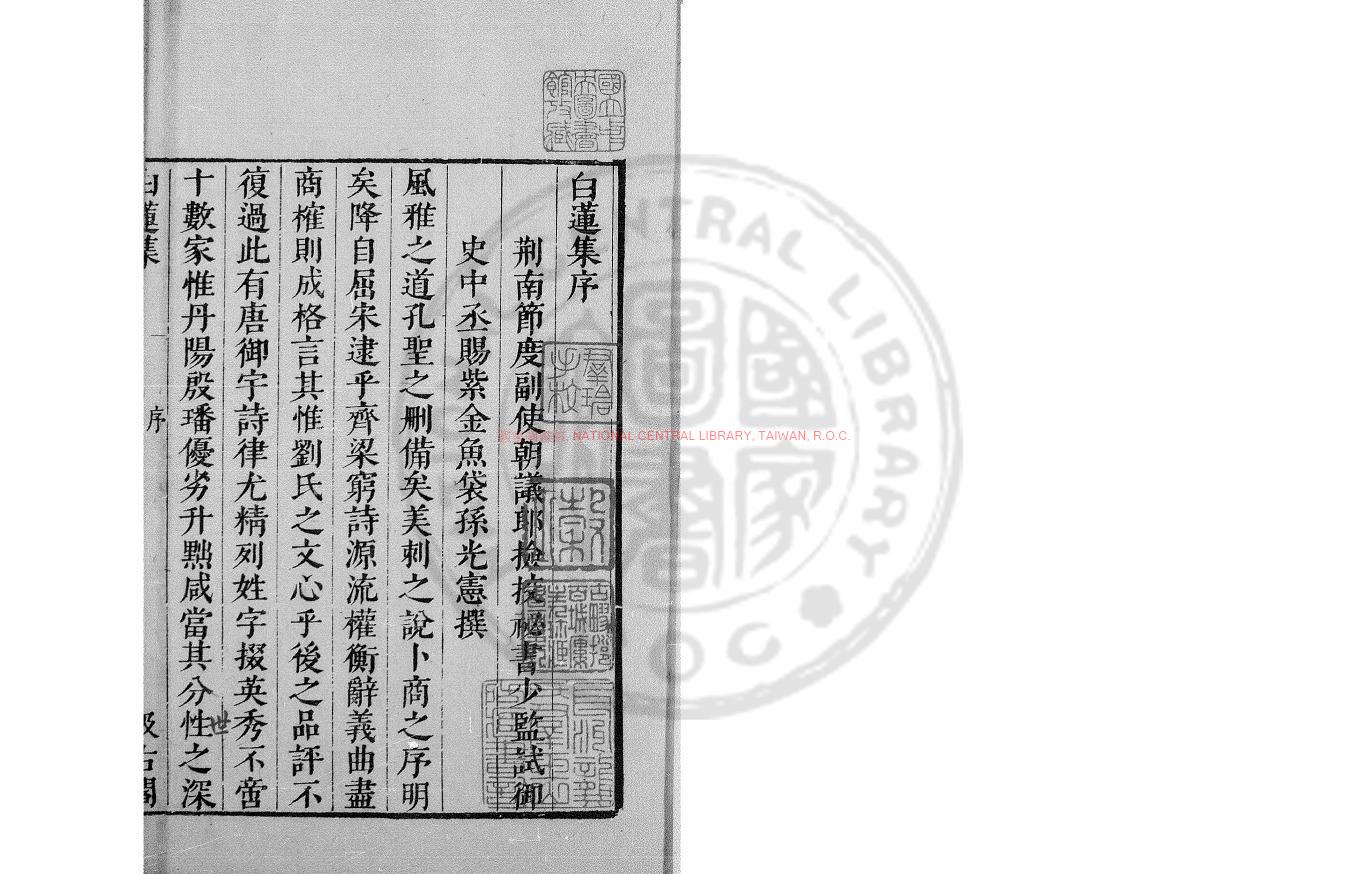 白蓮集序
荆南節度副使朝議郎撿挍祕書少監試御
史中丞賜紫金魚袋孫光憲撰
風雅之道孔聖之删備矣美刺之說卜商之序明
矣降自屈宋逮乎齊梁窮詩源流權衡辭義曲盡
商榷則成格言其惟劉氏之文心乎後之品評不
復過此有唐御宇詩律尤精列姓字掇英秀不啻
十數家惟丹陽殷璠優劣升黜咸當其分性之深
世
白蓮集
序
汲古閣
國立中
央圖書
館收藏
NATIONAL CENTRAL LIBRARY, TAIWAN, R.O.C.
國家圖書館